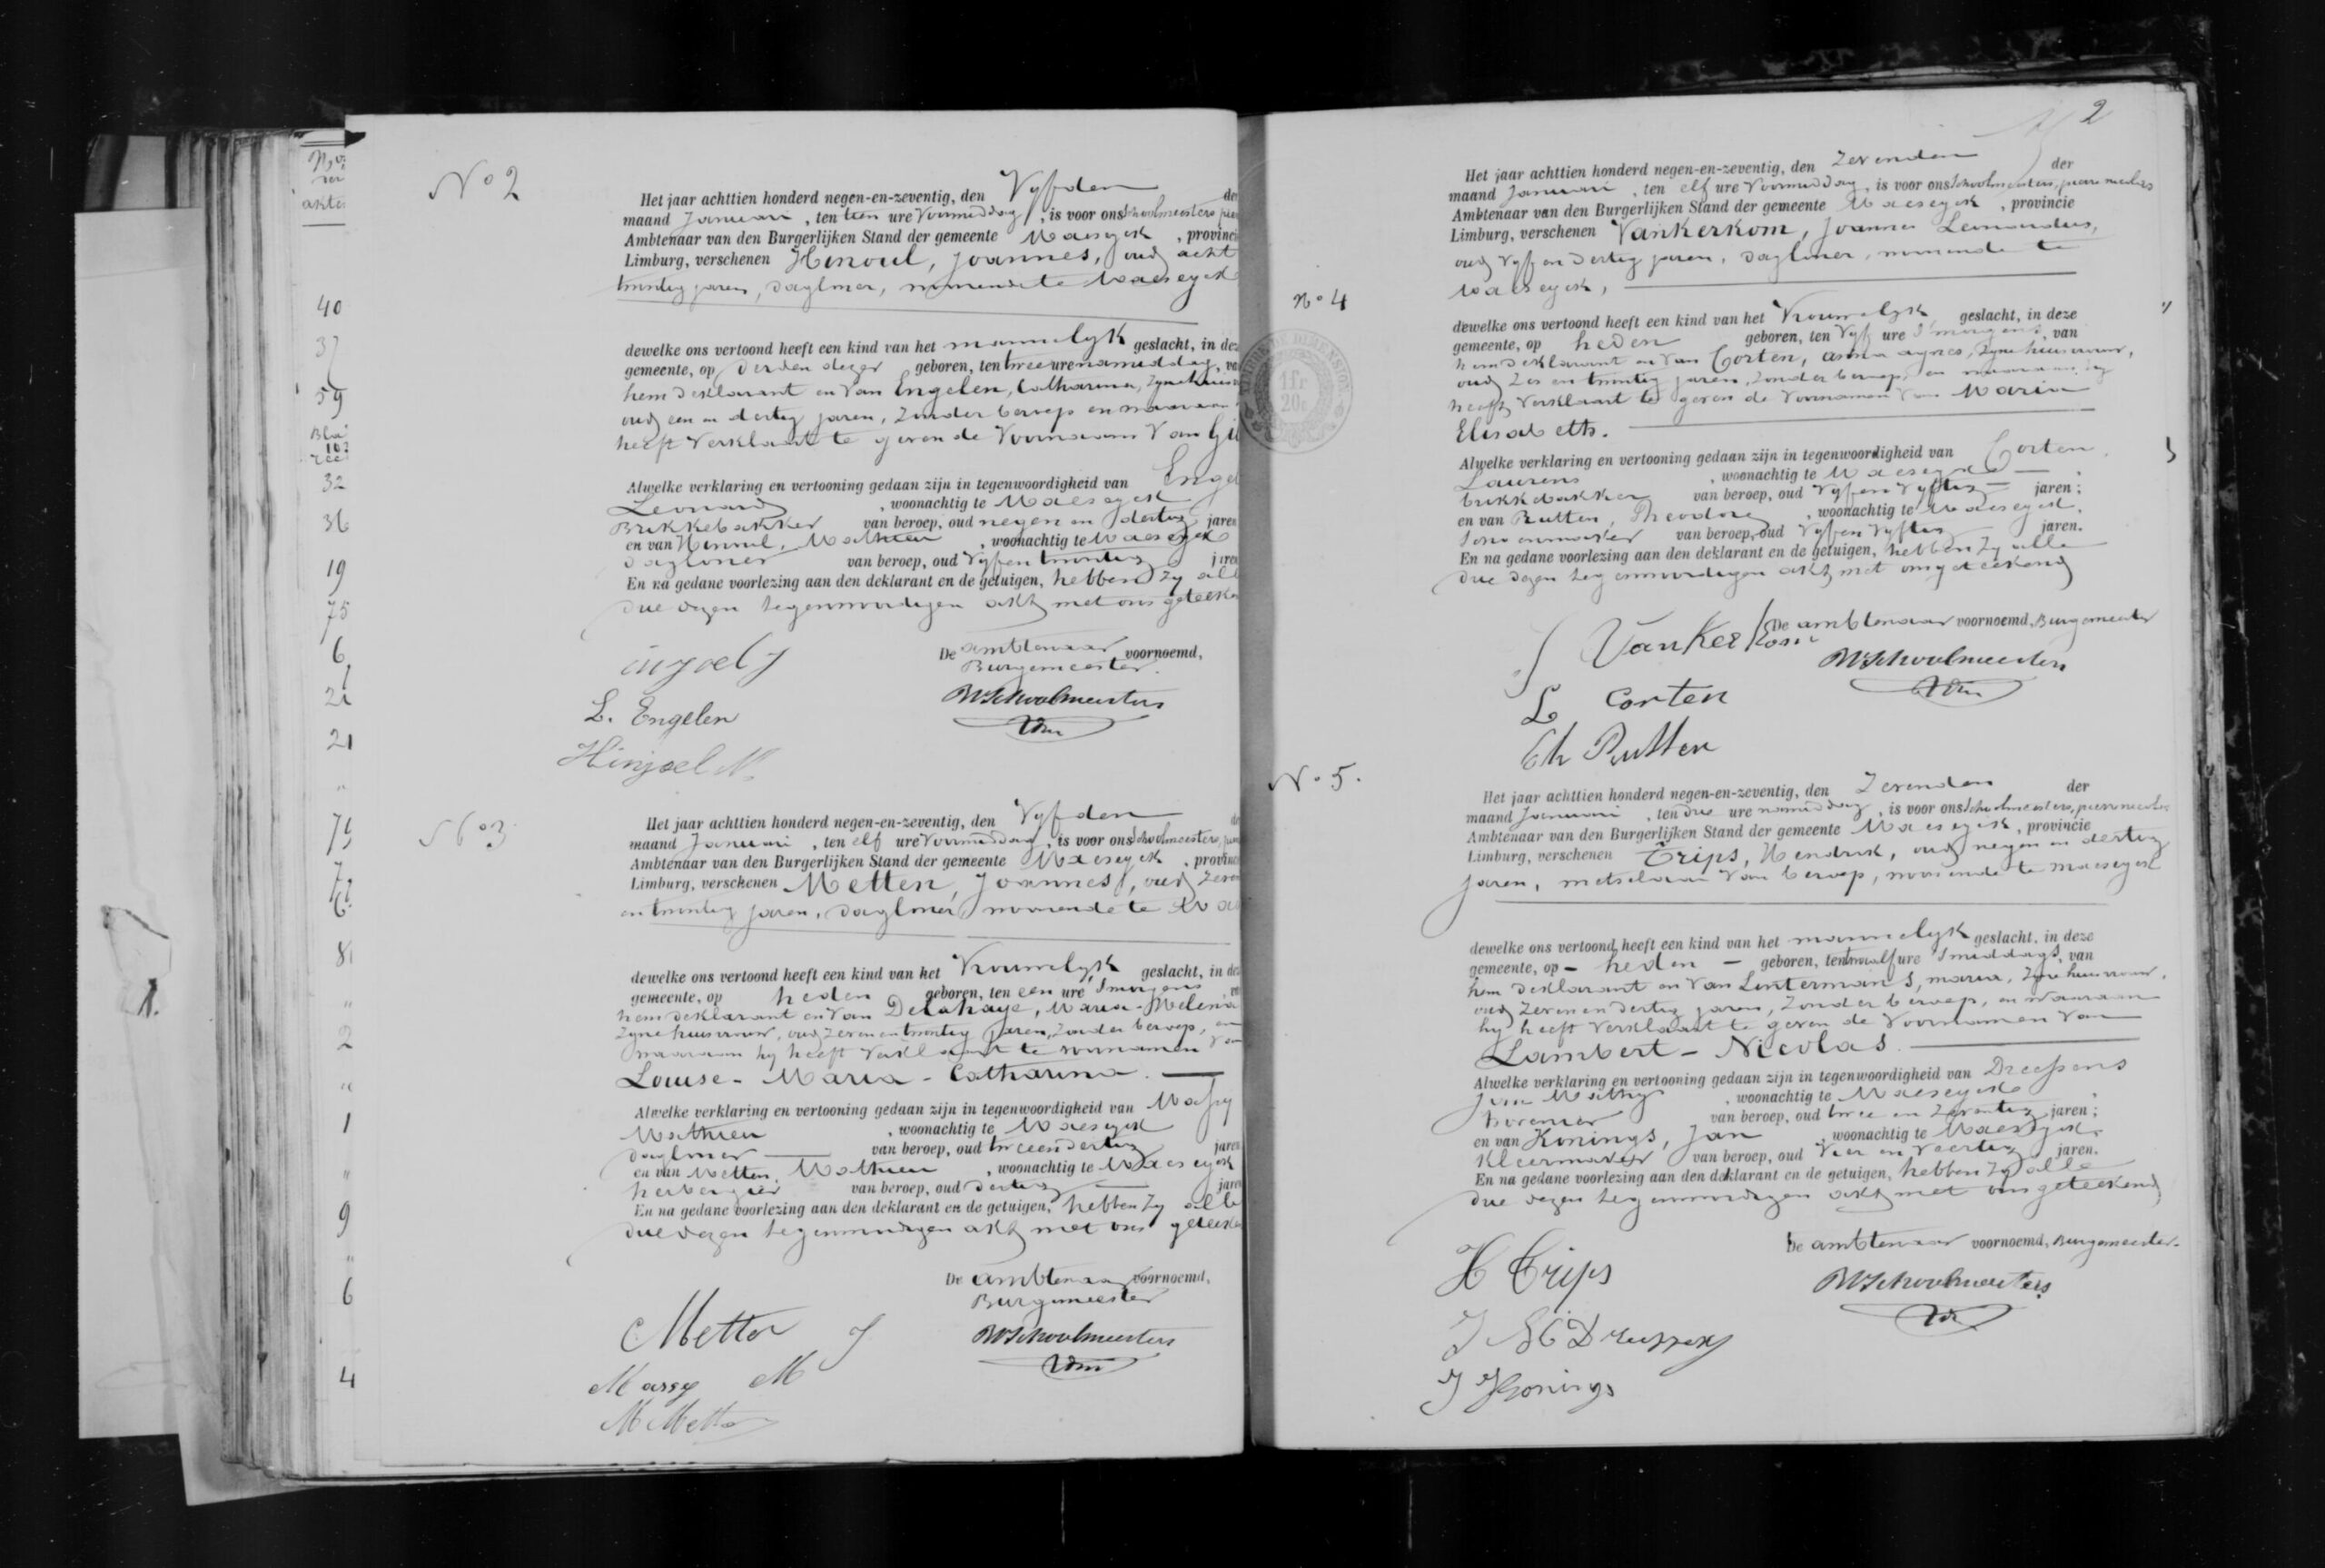 No 2
Het jaar achttien honderd negen-en-zeventig, den Vyfden de
maand Januari, ten tien ure Voormiddag, is voor ons Schoolmeesters
Ambtenaar van den Burgerlijken Stand der gemeente Maeseyck, provinci
Limburg, verschenen Hinoul, Joannes, oud acht
twintig jaren, dagloner, wonende te Maeseyck
dewelke ons vertoond heeft een kind van het mannelyk geslacht, in dez
gemeente, op derden dezer geboren, ten twee ure namiddag, va
hem deklarant en van Engelen, Catharina, Zyne huis
oud een en dertig jaren, Zonder beroep en waaraan
heeft Verklaart te geven de Voornaam Van
Alwelke verklaring en vertooning gedaan zijn in tegenwoordigheid van Engel
Leonard, woonachtig te Maeseyck
Brikkebakker van beroep, oud negen en dertig jaren
en van Hinoul, Mathieu, woonachtig te Maeseyck
dagloner van beroep, oud Vyf en twintig jaren
En na gedane voorlezing aan den deklarant en de getuigen, hebben Zy all
drie dezen tegenwoordigen akt met ons geteeken
De ambtenaar voornoemd,
Burgemeester.
L. Engelen
Schoolmeesters
No 3
Het jaar achttien honderd negen-en-zeventig, den Vyfden de
maand Januari, ten elf ure Voormiddag, is voor ons Schoolmeesters
Ambtenaar van den Burgerlijken Stand der gemeente Maeseyck, provinc
Limburg, verschenen Metten, Joannes, oud Zeven
en twintig jaren, dagloner, wonende te Ma
dewelke ons vertoond heeft een kind van het Vrouwelyk geslacht, in dez
gemeente, op heden geboren, ten een ure 's morgens
hem deklarant en Van Delahaye, Maria-Melena
Zyne huisvrouw, oud Zeven en twintig jaren, Zonder beroep, en
waaraan hy heeft Verklaart te voornamen Van
Louise-Maria-Catharina.
Alwelke verklaring en vertooning gedaan zijn in tegenwoordigheid van Massy
Mathieu, woonachtig te Maeseyck
dagloner van beroep, oud twee en dertig jaren
en van Metten, Mathieu, woonachtig te Maeseyck
herbergier van beroep, oud dertig jaren
En na gedane voorlezing aan den deklarant en de getuigen, hebben Zy alle
drie dezen tegenwoordigen akt met ons geteeken
De ambtenaar voornoemd,
Burgemeester
Metten J
Schoolmeesters
Massy M
M Metten
2
No 4
Het jaar achttien honderd negen-en-zeventig, den Zevenden der
maand Januari, ten elf ure Voormiddag, is voor ons Schoolmeesters, pierre nicolas
Ambtenaar van den Burgerlijken Stand der gemeente Maeseyck, provincie
Limburg, verschenen Vankerkom, Joannes Leonardus,
oud Vyf en dertig jaren, dagloner, wonende te
Maeseyck,
dewelke ons vertoond heeft een kind van het Vrouwelyk geslacht, in deze
gemeente, op heden geboren, ten Vyf ure 's morgens, van
hem deklarant en Van Corten, anna agnes, Zyne huisvrouw,
oud Zes en twintig jaren, Zonder beroep, en waaraan hy
heeft Verklaart te geven de Voornamen Van Maria
Elisabeth.
Alwelke verklaring en vertooning gedaan zijn in tegenwoordigheid van Corten
Laurens, woonachtig te Maeseyck
brikkebakker van beroep, oud Vyf en Vyftig jaren;
en van Rutten, Theodor, woonachtig te Maeseyck,
van beroep, oud Vyf en Vyftig jaren.
En na gedane voorlezing aan den deklarant en de getuigen, hebben Zy alle
drie dezen tegenwoordigen akt met ons geteekend
De ambtenaar voornoemd, Burgemeester
J Vankerkom
Schoolmeesters
L Corten
Th Rutten
No 5.
Het jaar achttien honderd negen-en-zeventig, den Zevenden der
maand Januari, ten drie ure namiddag, is voor ons Schoolmeesters, pierre nicolas
Ambtenaar van den Burgerlijken Stand der gemeente Maeseyck, provincie
Limburg, verschenen Trips, Hendrik, oud negen en dertig
jaren, metselaar Van beroep, wonende te Maeseyck
dewelke ons vertoond heeft een kind van het mannelyk geslacht, in deze
gemeente, op - heden - geboren, ten twaalf ure 's middags, van
hem deklarant en Van Lintermans, maria, Zyne huisvrouw,
oud Zeven en dertig jaren, Zonder beroep, en waaraan
hy heeft Verklaart te geven de Voornamen Van
Lambert-Nicolas.
Alwelke verklaring en vertooning gedaan zijn in tegenwoordigheid van Dreessens
Jan Mathys, woonachtig te Maeseyck
hovenier van beroep, oud twee en Zeventig jaren;
en van Konings, Jan woonachtig te Maeseyck
Kleermaker van beroep, oud Vier en Veertig jaren.
En na gedane voorlezing aan den deklarant en de getuigen, hebben Zy alle
drie dezen tegenwoordigen akt met ons geteekend
De ambtenaar voornoemd, Burgemeester.
H Trips
Schoolmeesters
J Konings